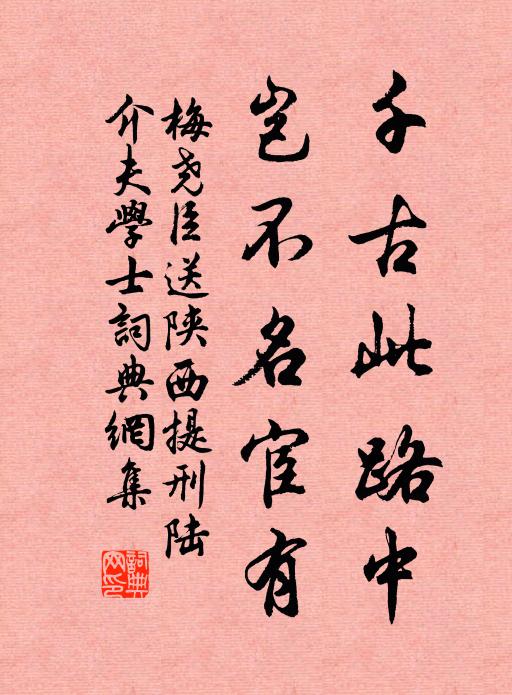 千古此路中
岂不名宦有
梅尧臣送陕西提刑陆
介夫學士詞典網集
詞典网印